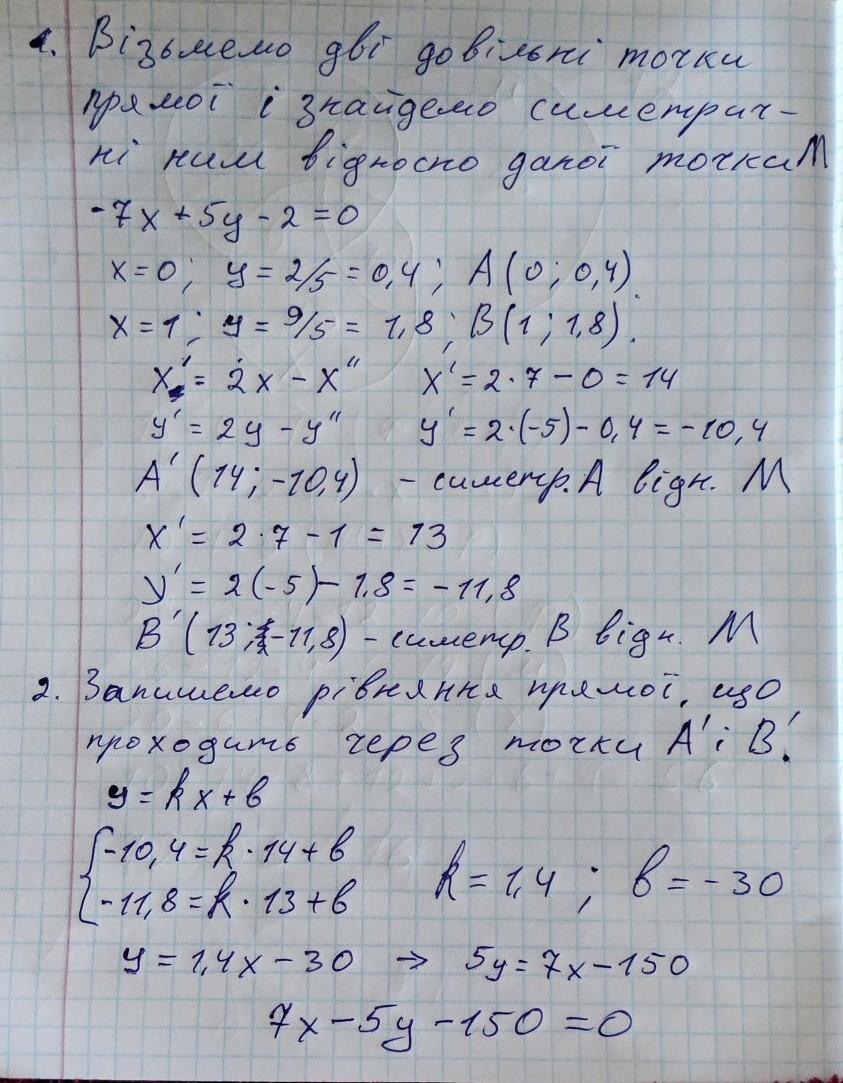 1. Візьмемо дві довільні точки
прямої і знайдемо симетрич-
ні ним відносно даної точки М
-7x + 5y - 2 = 0
x = 0; y = 2/5 = 0,4; A(0; 0,4).
x = 1; y = 9/5 = 1,8; B(1; 1,8).
x' = 2x - x'' x' = 2·7 - 0 = 14
y' = 2y - y'' y' = 2·(-5) - 0,4 = -10,4
A' (14; -10,4) - симетр. A відн. M
x' = 2·7 - 1 = 13
y' = 2(-5) - 1,8 = -11,8
B' (13; -11,8) - симетр. B відн. M
2. Запишемо рівняння прямої, що
проходить через точки A' і B'.
y = kx + b
{ -10,4 = k·14 + b
-11,8 = k·13 + b k = 1,4; b = -30
y = 1,4x - 30 → 5y = 7x - 150
7x - 5y - 150 = 0